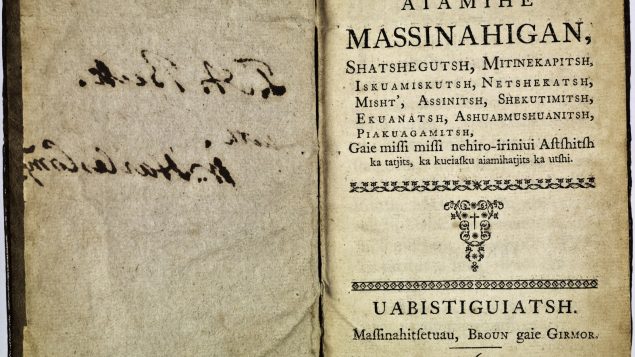 AIAMIHE
MASSINAHIGAN,
SHATSHEGUTSH, MITINEKAPITSH,
ISKUAMISKUTSH, NETSHEKATSH,
MISHT', ASSINITSH, SHEKUTIMITSH,
EKUANATSH, ASHUABMUSHUANITSH,
PIAKUAGAMITSH,
Gaie missi missi nehiro-iriniui Astshitsh
ka tatjits, ka kueiasku aiamihatjits ka utshi.
UABISTIGUIATSH.
Massinahitsetuau, BROUN gaie GIRMOR.